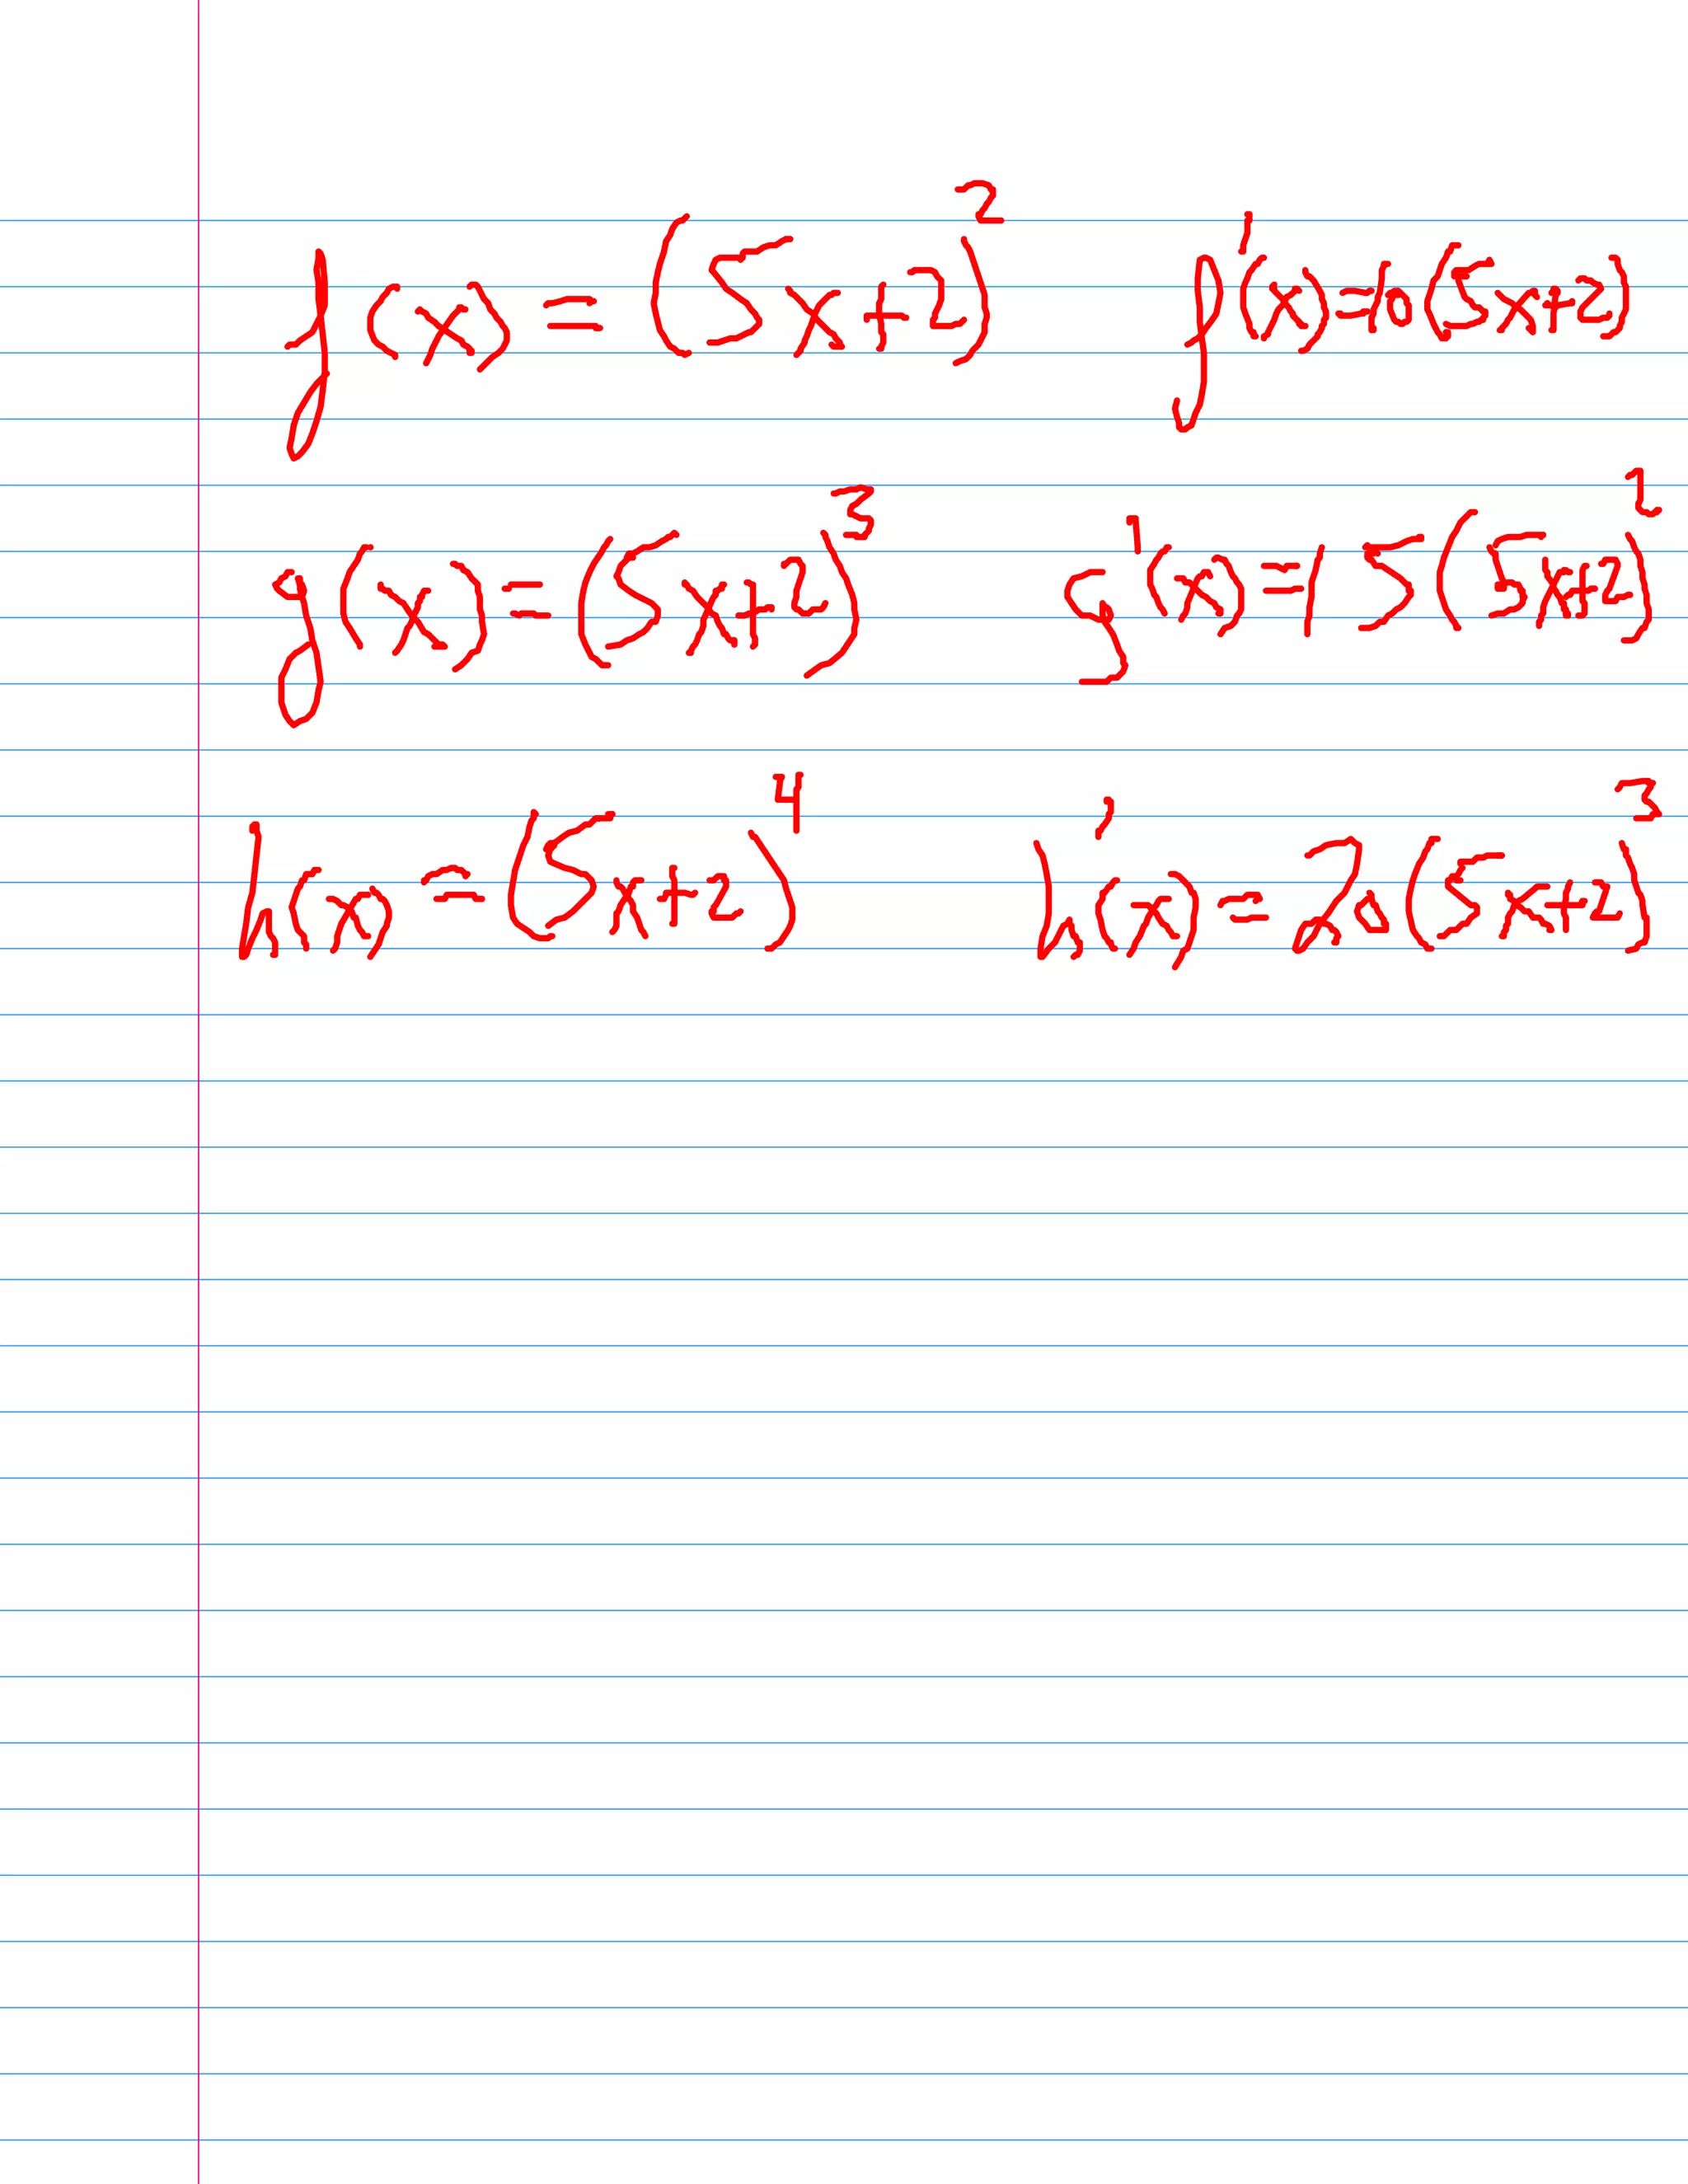 f(x) = (5x+2)² f'(x)=10(5x+2)
g(x) = (5x+2)³ g'(x)=15(5x+2)²
h(x) = (5x+2)⁴ h'(x) = 20(5x+2)³